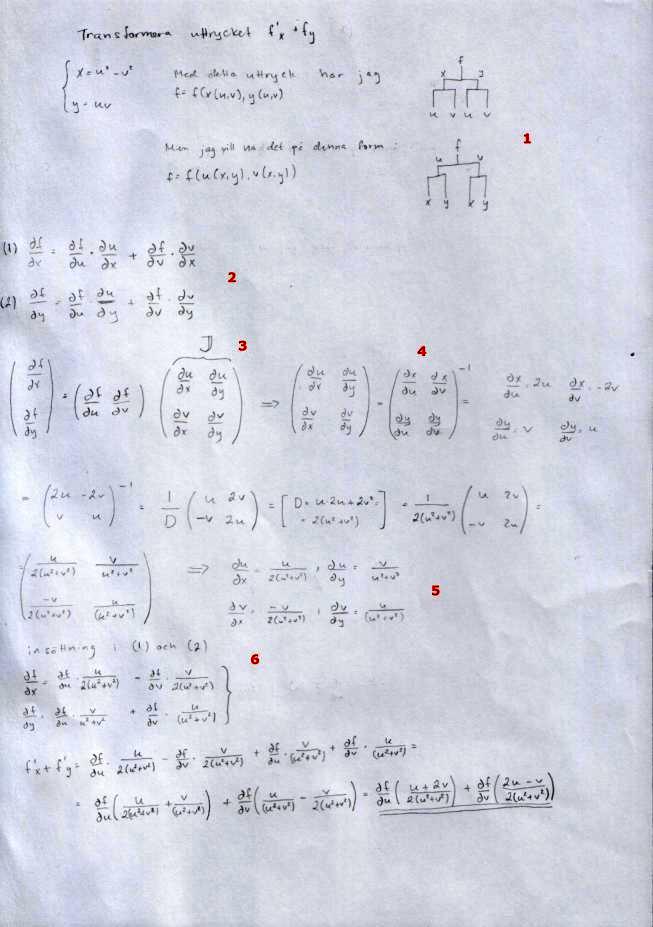 Transformera uttrycket f'x + f'y
{ x = u² - v²
y = uv
Med detta uttryck har jag
f = f(x(u,v), y(u,v)
f
x y
u v u v
1
Men jag vill ha det på denna form:
f = f(u(x,y), v(x,y))
f
u v
x y x y
(1) ∂f/∂x = ∂f/∂u · ∂u/∂x + ∂f/∂v · ∂v/∂x
2
(2) ∂f/∂y = ∂f/∂u · ∂u/∂y + ∂f/∂v · ∂v/∂y
J 3 4
(∂f/∂x ; ∂f/∂y) = (∂f/∂u ∂f/∂v) (∂u/∂x ∂u/∂y ; ∂v/∂x ∂v/∂y) ⇒ (∂u/∂x ∂u/∂y ; ∂v/∂x ∂v/∂y) = (∂x/∂u ∂x/∂v ; ∂y/∂u ∂y/∂v)⁻¹ =
∂x/∂u = 2u ∂x/∂v = -2v
∂y/∂u = v ∂y/∂v = u
= (2u -2v ; v u)⁻¹ = 1/D (u 2v ; -v 2u) = [D = u·2u + 2v² = = 2(u²+v²)] = 1/2(u²+v²) (u 2v ; -v 2u) =
= (u/2(u²+v²) v/u²+v² ; -v/2(u²+v²) u/(u²+v²)) ⇒ ∂u/∂x = u/2(u²+v²) , ∂u/∂y = v/u²+v²
∂v/∂x = -v/2(u²+v²) , ∂v/∂y = u/(u²+v²)
5
insättning i (1) och (2)
6
∂f/∂x = ∂f/∂u · u/2(u²+v²) - ∂f/∂v · v/2(u²+v²)
∂f/∂y = ∂f/∂u · v/u²+v² + ∂f/∂v · u/(u²+v²) }
f'x + f'y = ∂f/∂u · u/2(u²+v²) - ∂f/∂v · v/2(u²+v²) + ∂f/∂u · v/(u²+v²) + ∂f/∂v · u/(u²+v²) =
= ∂f/∂u (u/2(u²+v²) + v/(u²+v²)) + ∂f/∂v (u/(u²+v²) - v/2(u²+v²)) = ∂f/∂u (u+2v/2(u²+v²)) + ∂f/∂v (2u-v/2(u²+v²))